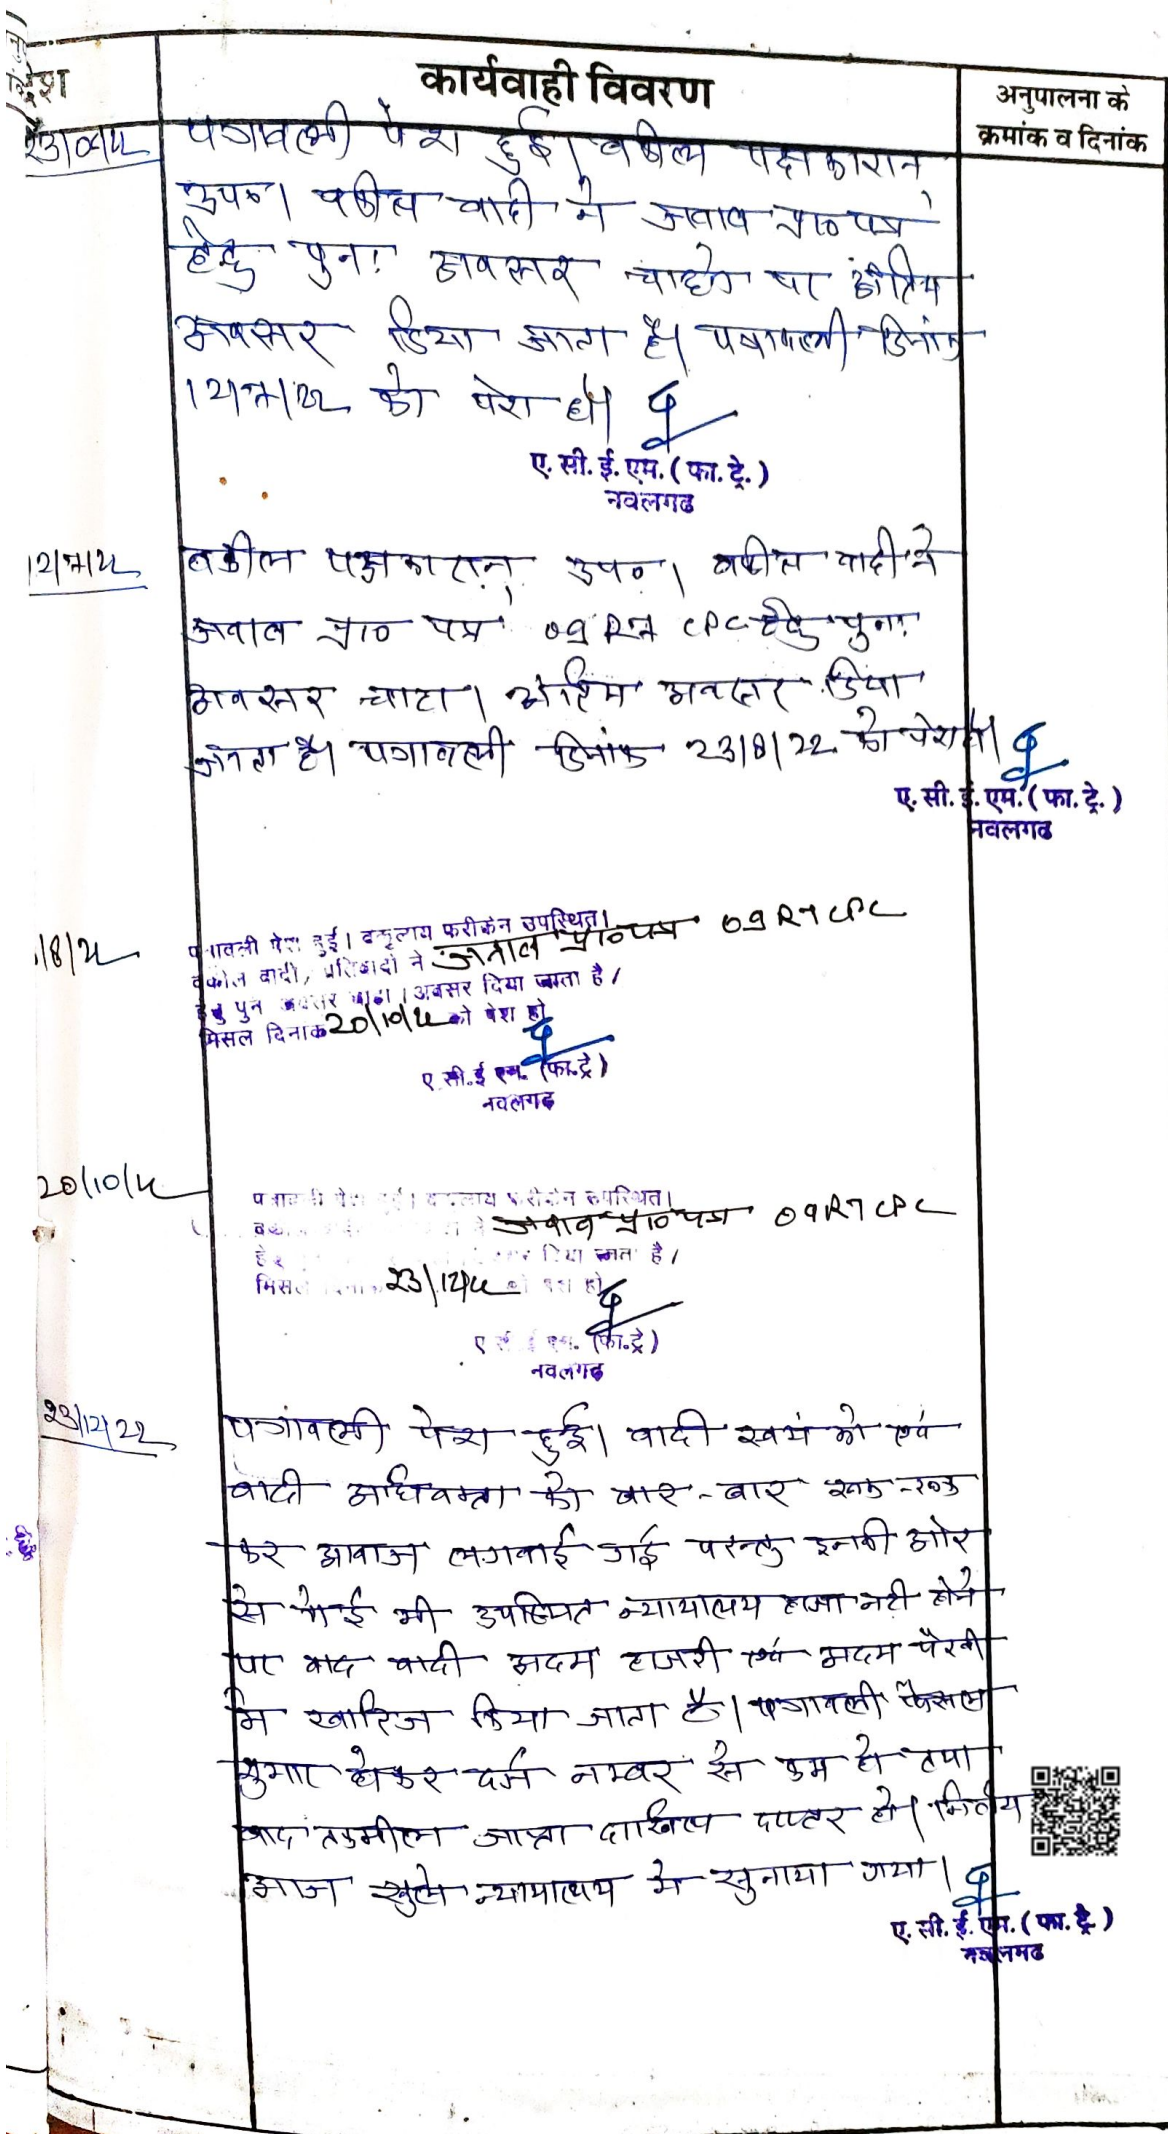 देश
कार्यवाही विवरण
अनुपालना के
क्रमांक व दिनांक
पत्रावली पेश हुई। वकील पक्षकारान
उप०। वकील वादी ने जवाब प्रा० पत्र
हेतु पुनः अवसर चाहने पर अंतिम
अवसर दिया जाता है। पत्रावली दिनांक
12/7/22 को पेश हो।
ए. सी. ई. एम. (फा. ट्रे.)
नवलगढ
12/7/22
वकील पक्षकारान उप०। वकील वादी ने
जवाब प्रा० पत्र 09 R7 CPC हेतु पुनः
अवसर चाहा। अंतिम अवसर दिया
जाता है। पत्रावली दिनांक 23/8/22 को पेश हो।
ए. सी. ई. एम. (फा. ट्रे.)
नवलगढ
/8/22
पत्रावली पेश हुई। वकूलाय फरीकेन उपस्थित।
वकील वादी, प्रतिवादी ने जवाब प्रा० पत्र 09 R7 CPC
हेतु पुन अवसर चाहा। अवसर दिया जाता है।
मिसल दिनांक 20/10/22 को पेश हो
ए. सी. ई. एम. (फा. ट्रे)
नवलगढ
20/10/22
पत्रावली पेश हुई। वकूलाय फरीकेन उपस्थित।
जवाब प्रा० पत्र 09 R7 CPC
दिया जाता है।
मिसल 23/12/22 को पेश हो
ए सी ई एम. (फा.ट्रे)
नवलगढ
23/12/22
पत्रावली पेश हुई। वादी स्वयं को एवं
वादी अधिवक्ता को बार-बार रूक-रूक
कर आवाज लगवाई गई परन्तु इनकी ओर
से कोई भी उपस्थित न्यायालय हाजा नही होने
पर वाद वादी अदम हाजरी एवं अदम पैरवी
मे खारिज किया जाता है। पत्रावली फैसल
शुमार होकर दर्ज नम्बर से कम हो तथा
बाद तकमील जाप्ता दाखिल दफ्तर हो। निर्णय
आज खुले न्यायालय मे सुनाया गया।
ए. सी. ई. एम. (फा. ट्रे.)
नवलगढ